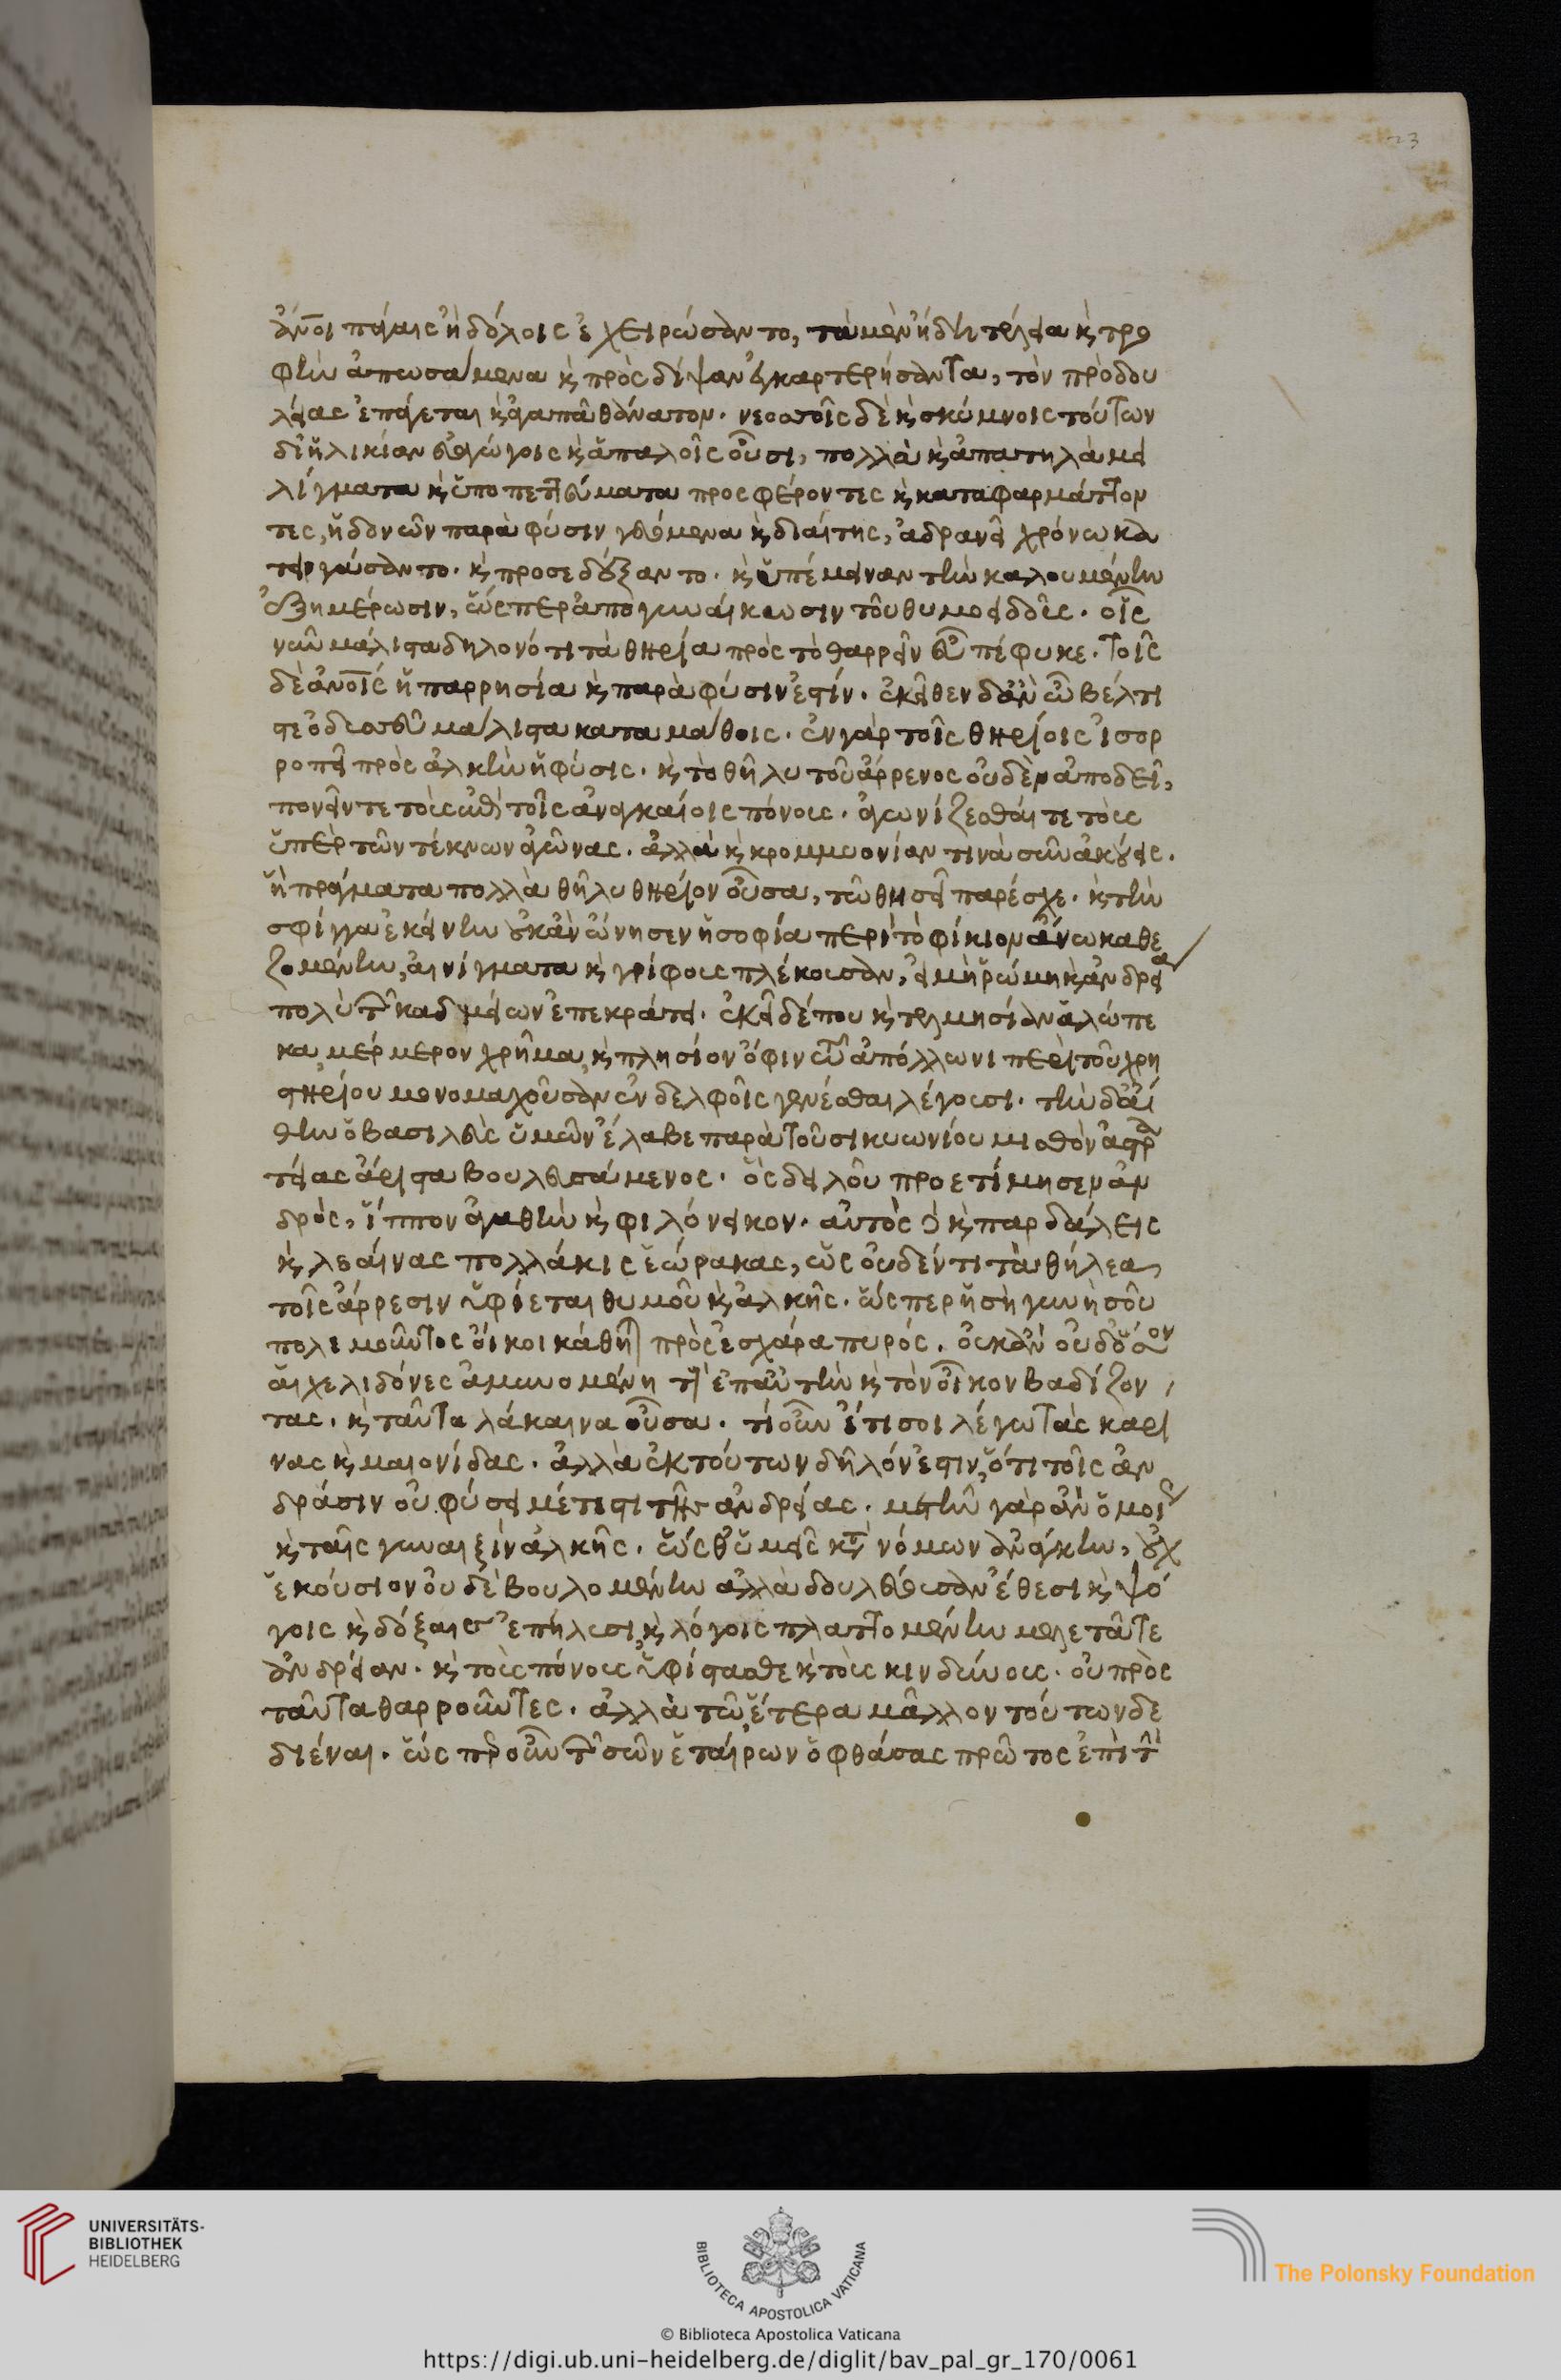 23
ἄνοι πάγαις ἢ δόλοις ἐχειρώσαντο, τὰ μὲν ἤδη τέλεια κ̀ τρο
φὴν ἀπωσάμενα κ̀ πρὸς δίψαν ἐγκαρτερήσαντα, τὸν πρὸ δου
λείας ἐπάγεται κ̀ ἀγαπᾶ θάνατον. νεοσσοῖς δὲ κ̀ σκύμνοις τούτων
δι' ἡλικίαν εὐαγώγοις κ̀ ἁπαλοῖς οὖσι, πολλὰ κ̀ ἀπατηλὰ μει
λίγματα κ̀ ὑποπεττεύματα προσφέροντες κ̀ καταφαρμάττον
τες, ἡδονῶν παρὰ φύσιν γευόμενα κ̀ διαίτης, ἀδρανεῖ χρόνω κα
τειργάσαντο. κ̀ προσεδέξαντο. κ̀ ὑπέμειναν τὴν καλουμένην
ἐξημέρωσιν, ὥσπερ ἀπογυναίκωσιν τοῦ θυμοειδοῦς. οἷς
νῦν μάλιστα δηλονότι τὰ θηρία πρὸς τὸ θαρρεῖν εὖ πέφυκε. τοῖς
δὲ ἀνοῖς ἡ παρρησία κ̀ παρὰ φύσιν ἐστίν. ἐκεῖθεν δ' ἂν ὦ βέλτι
στε ὀδυσσεῦ μάλιστα καταμάθοις. ἐν γὰρ τοῖς θηρίοις ἰσορ
ροπεῖ πρὸς ἀλκὴν ἡ φύσις. κ̀ τὸ θῆλυ τοῦ ἄρρενος οὐδὲν ἀποδεῖ,
πονεῖν τε τοὺς ἐπὶ τοῖς ἀναγκαίοις πόνους. ἀγωνίζεσθαί τε τοὺς
ὑπὲρ τῶν τέκνων ἀγῶνας. ἀλλὰ κ̀ κρομμυονίαν τινὰ σῦν ἀκούεις.
ἣ πράγματα πολλὰ θῆλυ θηρίον οὖσα, τῶ θησεῖ παρέσχε. κ̀ τὴν
σφίγγα ἐκείνην οὐκ ἂν ὤνησεν ἡ σοφία περὶ τὸ φίκιον ἄνω καθε
ζομένην, αἰνίγματα κ̀ γρίφους πλέκουσαν, εἰ μὴ ῥώμη κ̀ ἀνδρεία
πολὺ τ̂ καδμείων ἐπεκράτει. ἐκεῖ δέ που κ̀ τελμησίαν ἀλώπε
κα μέρμερον χρῆμα, κ̀ πλησίον ὄφιν τῶ ἀπόλλωνι περὶ τοῦ χρη
στηρίου μονομαχοῦσαν ἐν δελφοῖς γενέσθαι λέγουσι. τὴν δ' αἴ
θην ὁ βασιλεὺς ὑμῶν ἔλαβε παρὰ τοῦ σικυωνίου μισθὸν ἀστρα
τείας ἄριστα βουλευσάμενος. ὃς δειλοῦ προετίμησεν ἀν
δρὸς, ἵππον ἀγαθὴν κ̀ φιλόνεικον. αὐτὸς δὲ κ̀ παρδάλεις
κ̀ λεαίνας πολλάκις ἑώρακας, ὡς οὐδέν τι τὰ θήλεα
τοῖς ἄρρεσιν ὑφίεται θυμοῦ κ̀ ἀλκῆς. ὥσπερ ἡ σὴ γυνὴ σοῦ
πολεμοῦντος οἴκοι κάθηται πρὸς ἐσχάρα πυρός. οὐκ ἂν οὐδ' ὅσον
αἱ χελιδόνες ἀμυνομένη τοὺς ἐπ' αὐτὴν κ̀ τὸν οἶκον βαδίζον
τας. κ̀ ταῦτα λάκαινα οὖσα. τί οὖν ἔτι σοι λέγω τὰς καρί
νας κ̀ μαιονίδας. ἀλλὰ ἐκ τούτων δῆλόν ἐστιν, ὅτι τοῖς ἀν
δράσιν οὐ φύσει μέτεστι τῆς ἀνδρείας. μετῆν γὰρ ἂν ὁμοίως
κ̀ ταῖς γυναιξὶν ἀλκῆς. ὥσθ' ὑμεῖς κτ̀ νόμων ἀνάγκην, οὐχ
ἑκούσιον οὐδὲ βουλομένην ἀλλὰ δουλεύουσαν ἔθεσι κ̀ ψό
γοις κ̀ δόξαις ἐπήλυσι, κ̀ λόγοις πλαττομένην μελετᾶτε
ἀνδρείαν. κ̀ τοὺς πόνους ὑφίστασθε κ̀ τοὺς κινδύνους. οὐ πρὸς
ταῦτα θαρροῦντες. ἀλλὰ τῶ ἕτερα μᾶλλον τούτων δε
διέναι. ὥσπερ οὖν τ̂ σῶν ἑταίρων ὁ φθάσας πρῶτος ἐπὶ τ̀
UNIVERSITÄTS-
BIBLIOTHEK
HEIDELBERG
BIBLIOTECA APOSTOLICA VATICANA
The Polonsky Foundation
© Biblioteca Apostolica Vaticana
https://digi.ub.uni-heidelberg.de/diglit/bav_pal_gr_170/0061